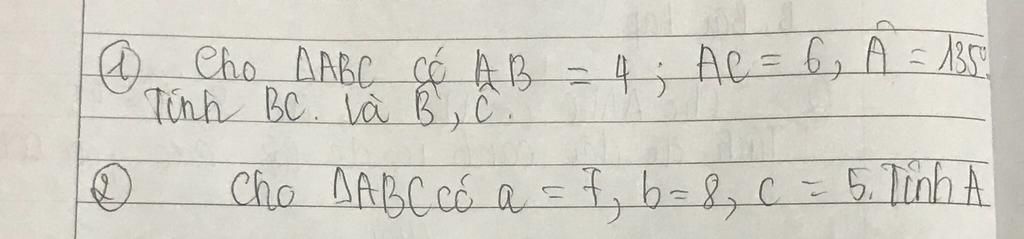 ① Cho ΔABC có AB = 4 ; AC = 6, Â = 135°.
Tính BC. là B̂, Ĉ.
② Cho ΔABC có a = 7, b = 8, c = 5. Tính A